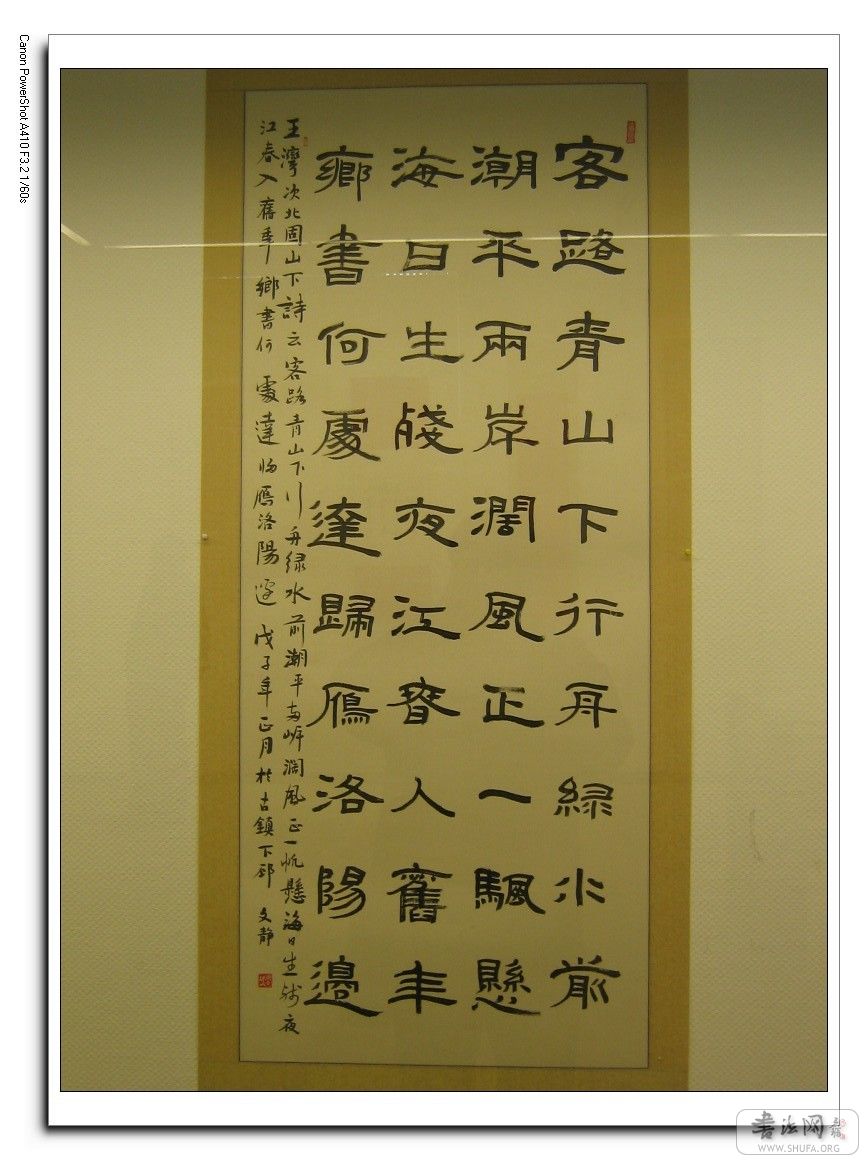 客路青山下行舟綠水前
潮平兩岸濶風正一颿懸
海日生殘夜江春入舊年
鄉書何處達歸鴈洛陽邊
王灣次北固山下詩云客路青山下行舟緑水前潮平両岸濶風正一帆懸海日生殘夜
江春入舊年鄉書何處達歸鴈洛陽邊戊子年正月於古鎮下邳 文静
Canon PowerShot A410 F3.2 1/60s
書法网
WWW.SHUFA.ORG